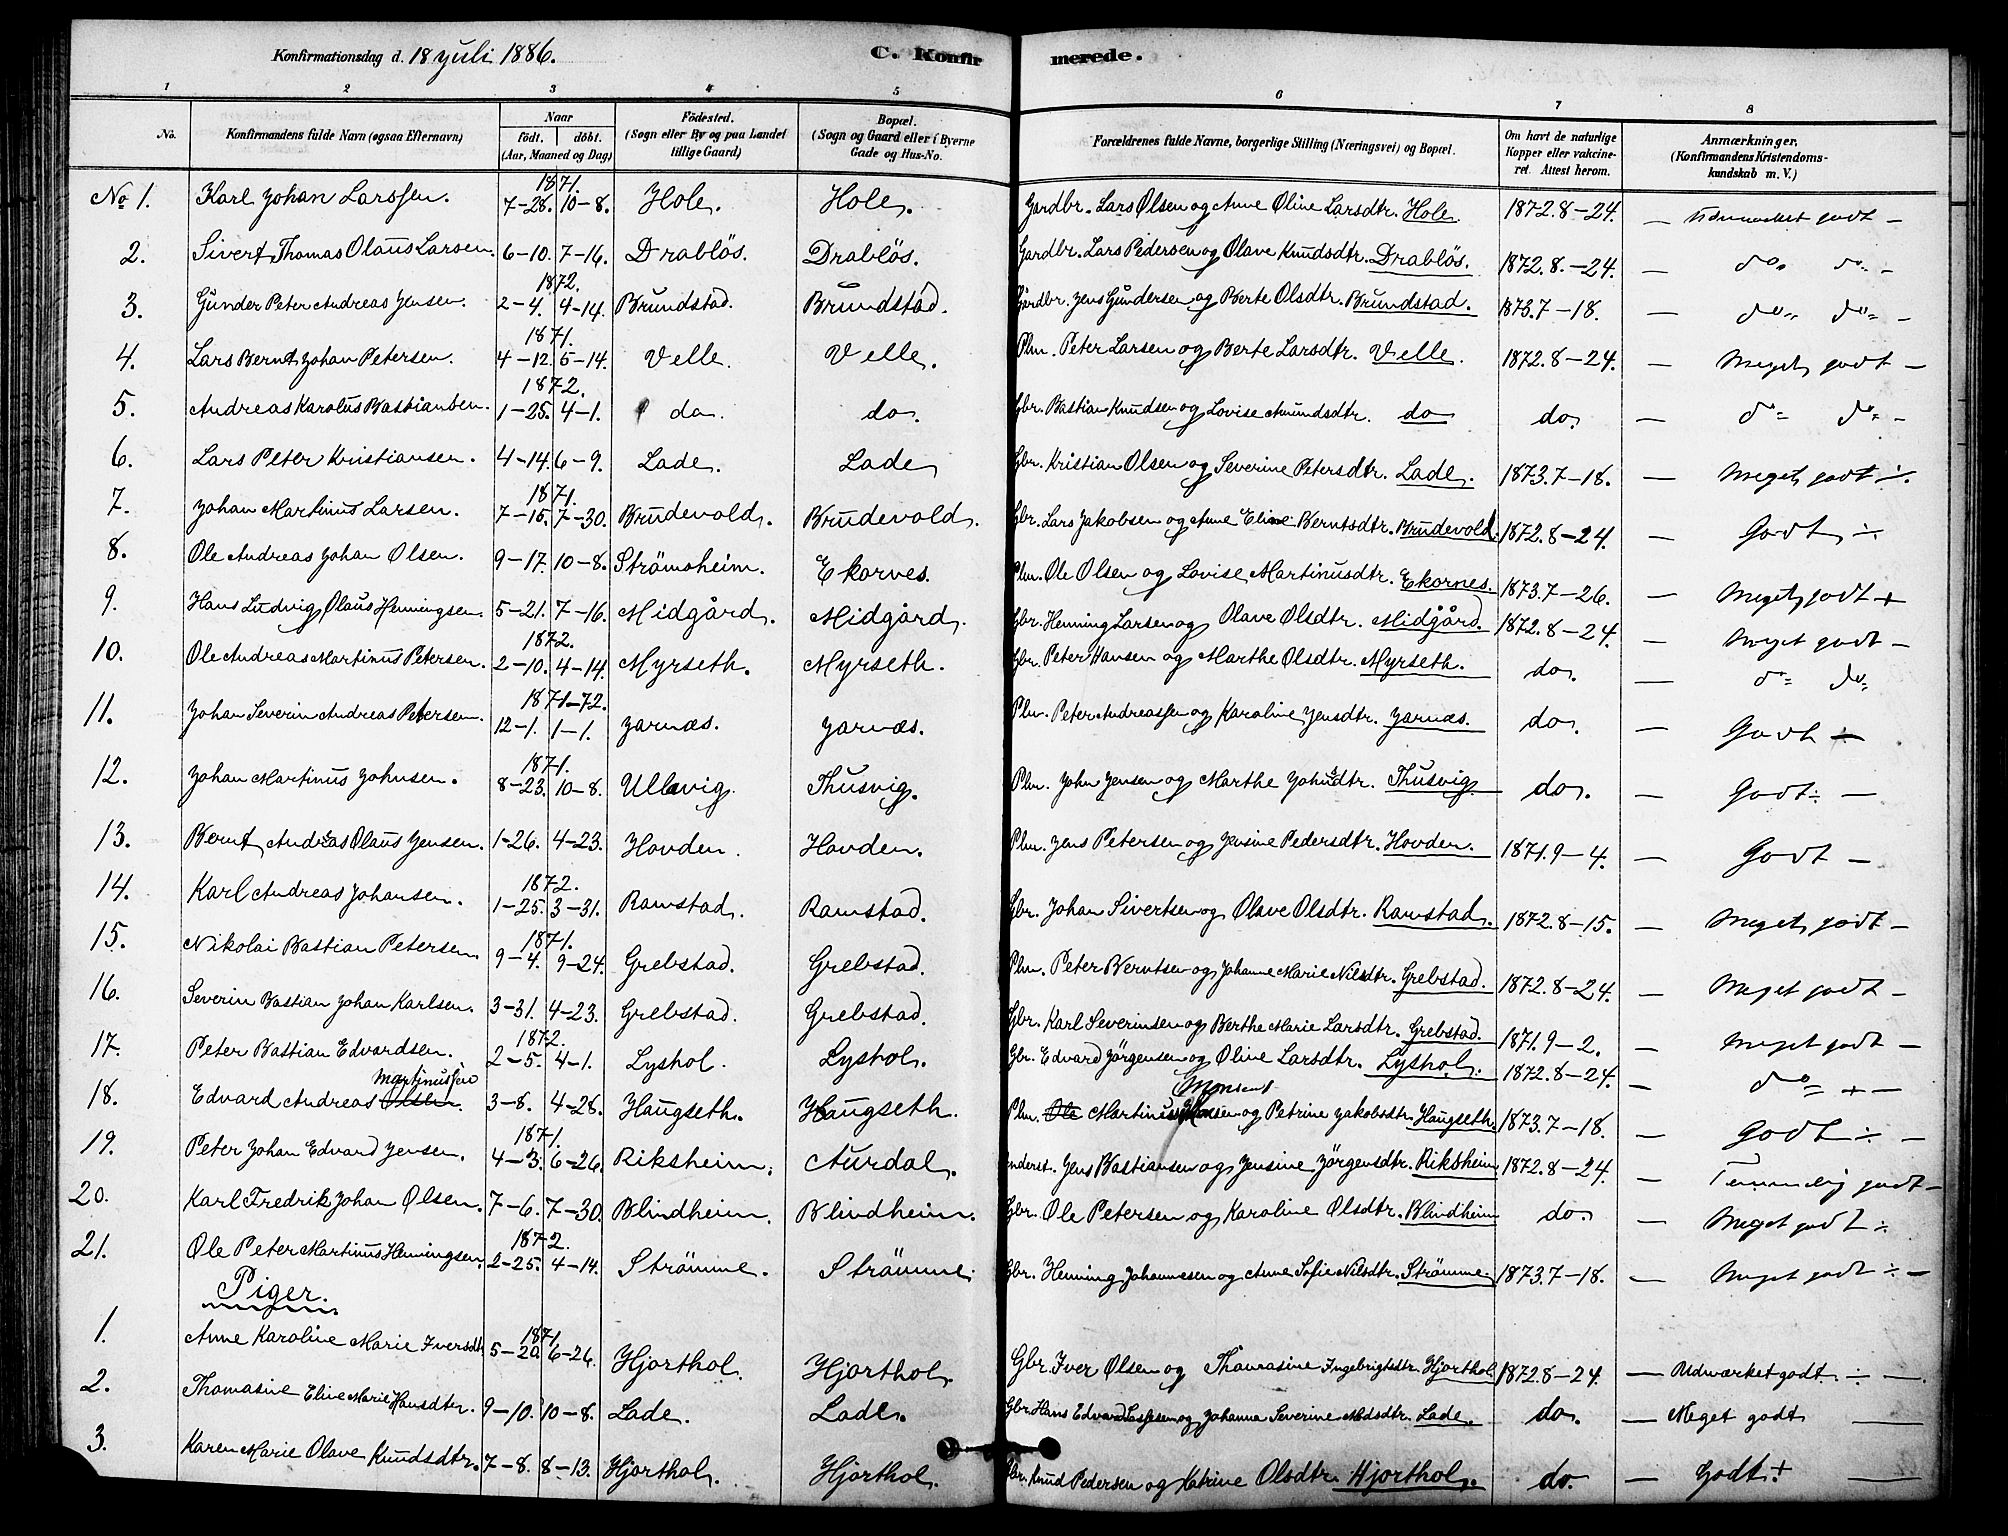 Konfirmationsdag d. 18 Juli 1886.
C. Konfirmerede.
1 2 3 4 5 6 7 8
No. Konfirmandens fulde Navn (ogsaa Efternavn) Naar födt. döbt. (Aar, Maaned og Dag) Födested. (Sogn eller By og paa Landet tillige Gaard) Bopæl. (Sogn og Gaard eller i Byerne Gade og Hus-No. Forældrenes fulde Navne, borgerlige Stilling (Næringsvei) og Bopæl. Om havt de naturlige Kopper eller vakcineret. Attest herom. Anmærkninger. (Konfirmandens Kristendomskundskab m. V.)
1871.
No 1. Karl Johan Larssen. 7-28. 10-8. Hole. Hole. Gardbr. Lars Olsen og Anne Oline Larsdtr. Hole 1872.8-24. — Udmærket godt —
2. Sivert Thomas Olaus Larsen 6-10. 7-16. Drablös. Drablös. Gardbr. Lars Pedersen og Olave Knudsdtr. Drablös. 1872.8.-24. — do do —
1872.
3. Gunder Peter Andreas Jensen. 2-4. 4-14. Brundstad. Brundstad. Gårdbr. Jens Gundersen og Berte Olsdtr. Brundstad. 1873.7-18. — do do —
1871.
4. Lars Bernt Johan Petersen. 4-12. 5-14. Velle. Velle. Plm. Peter Larsen og Berte Larsdtr. Velle. 1872.8-24. — Meget godt —
1872.
5. Andreas Karolus Bastiansen. 1-25. 4-1. do. do. Gbr. Bastian Knudsen og Lovise Amundsdtr. do do. — do do —
6. Lars Peter Kristiansen. 4-14. 6-9. Lade. Lade Gbr. Kristian Olsen og Severine Petersdtr. Lade. 1873.7-18. — Meget godt ÷
1871.
7. Johan Martinus Larsen. 7-15. 7-30. Brudevold. Brudevold. Gbr. Lars Jakobsen og Anne Eline Berntsdtr. Brudevold. 1872.8-24. — Godt ÷
8. Ole Andreas Johan Olsen. 9-17. 10-8. Strömsheim. Ekornes. Plm. Ole Olsen og Lovise Martinusdtr. Ekornes. 1873.7-26. — Meget godt +
9. Hans Ludvig Olaus Henningsen. 5-21. 7-16. Midgård. Midgård. Gbr. Henning Larsen og Olave Olsdtr. Midgård. 1872.8-24. — Meget godt —
1872.
10. Ole Andreas Martinus Petersen. 2-10. 4-14. Myrseth. Myrseth. Gbr. Peter Hansen og Marthe Olsdtr. Myrseth. do. — do do
1871-72.
11. Johan Severin Andreas Petersen. 12-1. 1-1. Jarnæs. Jarnæs. Plm. Peter Andreassen og Karoline Jensdtr. Jarnæs. do. — Godt ÷
1871.
12. Johan Martinus Johnsen. 8-23. 10-8. Ullavig. Thusvig. Plm. John Jensen og Marthe Johnsdtr. Thusvig. do. — Godt ÷ —
13. Bernt Andreas Olaus Jensen. 1-26. 4-23. Hovden. Hovden. Plm. Jens Petersen og Jensine Pedersdtr. Hovden. 1871.9-4. — Godt —
1872.
14. Karl Andreas Johansen. 1-25. 3-31. Ramstad. Ramstad. Gbr. Johan Sivertsen og Olave Olsdtr. Ramstad. 1872.8-15. — Meget godt —
1871.
15. Nikolai Bastian Petersen 9-4. 9-24. Grebstad. Grebstad. Plm. Peter Berntsen og Johanne Marie Nilsdtr. Grebstad. 1872.8-24. — Meget godt —
16. Severin Bastian Johan Karlsen. 3-31. 4-23. Grebstad. Grebstad. Gbr. Karl Severinsen og Berthe Marie Larsdtr. Grebstad. 1871.9-2. — Meget godt —
1872.
17. Peter Bastian Edvardsen. 2-5. 4-1. Lyshol. Lyshol. Gbr. Edvard Jörgensen og Oline Larsdtr. Lyshol. 1872.8-24. — do + —
Martinussen Monsens
18. Edvard Andreas Olsen. 3-8. 4-28. Haugseth. Haugseth. Plm. Ole Martinus og Petrine Jakobsdtr. Haugseth. 1873.7-18. — Godt ÷ —
1871.
19. Peter Johan Edvard Jensen. 4-3. 6-26. Riksheim. Aurdal. Inderst. Jens Bastiansen og Jensine Jörgensdtr. Riksheim 1872.8-24. — Temmelig godt —
20. Karl Fredrik Johan Olsen. 7-6. 7-30. Blindheim. Blindheim. Gbr. Ole Petersen og Karoline Olsdtr. Blindheim do. — Meget godt ÷
1872.
21. Ole Peter Martinus Henningsen. 2-25. 4-14. Strömme. Strömme. Gbr. Henning Johannesen og Anne Sofie Nilsdtr. Strömme. 1873.7-18. — Meget godt ÷ —
Piger.
1871.
1. Anne Karoline Marie Iversdt. 5-20. 6-26. Hjorthol. Hjorthol. Gbr. Iver Olsen og Thomasine Ingebrigtsdtr. Hjorthol. 1872.8-24. — Udmærket godt ÷ —
2. Thomasine Eline Marie Hansdter. 9-10. 10-8. Lade. Lade. Gbr. Hans Edvard Lassesen og Johanna Severine Madsdtr. Lade. do. — Meget godt —
3. Karen Marie Olave Knudsdtr. 7-8. 8-13. Hjorthol. Hjorthol. Gbr. Knud Pedersen og Katrine Olsdtr. Hjorthol. do. — Godt + —